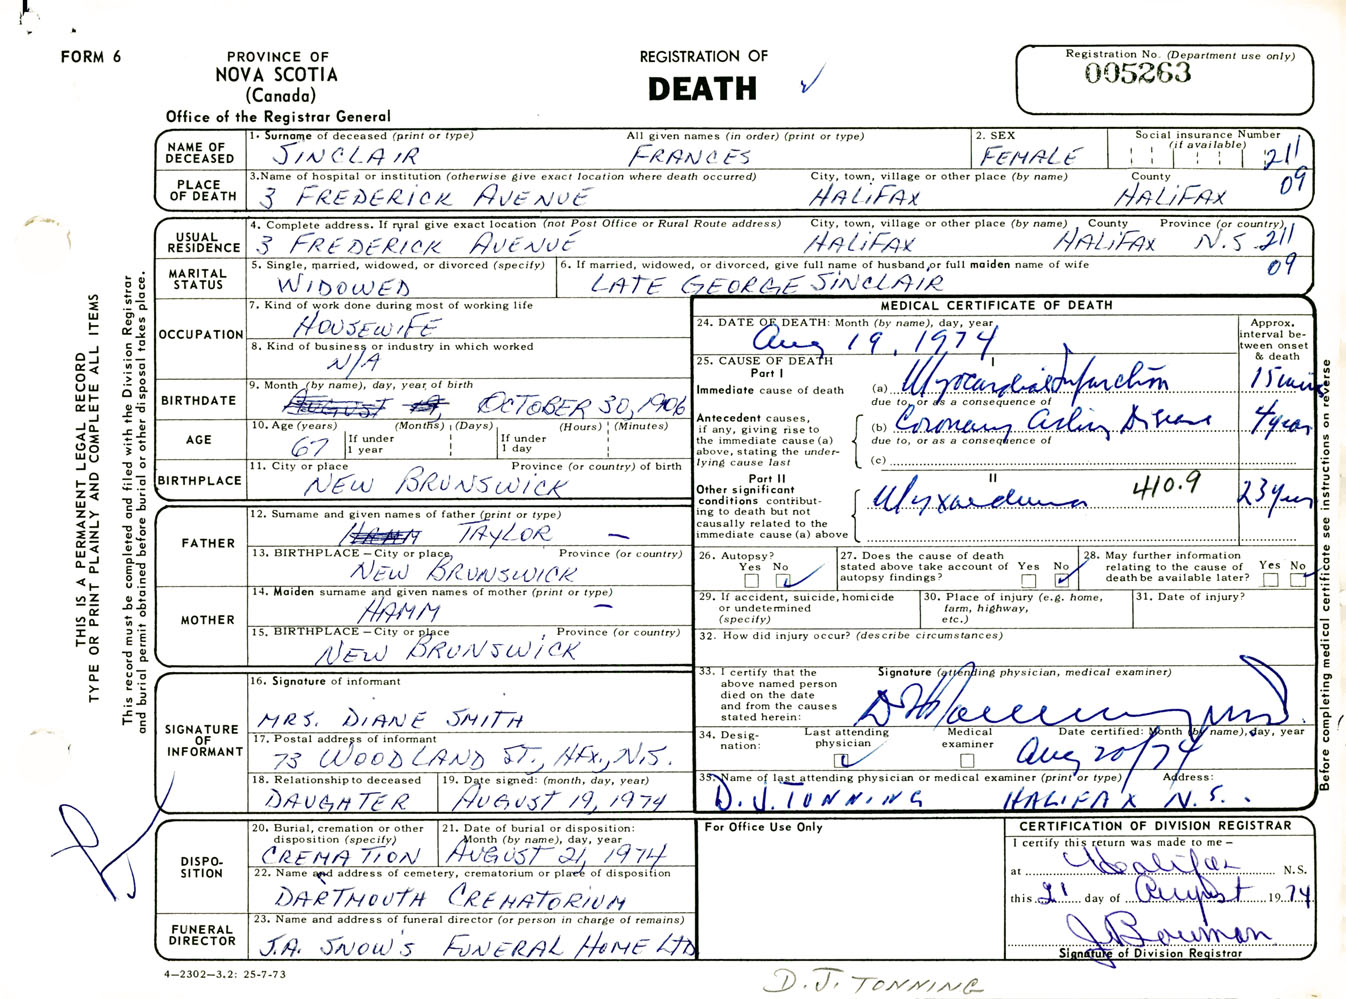 FORM 6
PROVINCE OF
NOVA SCOTIA
(Canada)
Office of the Registrar General
REGISTRATION OF
DEATH
Registration No. (Department use only)
005263
THIS IS A PERMANENT LEGAL RECORD
TYPE OR PRINT PLAINLY AND COMPLETE ALL ITEMS
This record must be completed and filed with the Division Registrar
and burial permit obtained before burial or other disposal takes place.
NAME OF DECEASED
1. Surname of deceased (print or type) All given names (in order) (print or type) 2. SEX Social insurance Number (if available)
SINCLAIR FRANCES FEMALE 211
PLACE OF DEATH
3. Name of hospital or institution (otherwise give exact location where death occurred) City, town, village or other place (by name) County
3 FREDERICK AVENUE HALIFAX HALIFAX 09
USUAL RESIDENCE
4. Complete address. If rural give exact location (not Post Office or Rural Route address) City, town, village or other place (by name) County Province (or country)
3 FREDERICK AVENUE HALIFAX HALIFAX N.S. 211
MARITAL STATUS
5. Single, married, widowed, or divorced (specify) 6. If married, widowed, or divorced, give full name of husband or full maiden name of wife
WIDOWED LATE GEORGE SINCLAIR 09
OCCUPATION
7. Kind of work done during most of working life
HOUSEWIFE
8. Kind of business or industry in which worked
N/A
BIRTHDATE
9. Month (by name), day, year of birth
AUGUST 19, OCTOBER 30, 1906
AGE
10. Age (years) (Months) (Days) (Hours) (Minutes)
67 If under 1 year If under 1 day
BIRTHPLACE
11. City or place Province (or country) of birth
NEW BRUNSWICK
FATHER
12. Surname and given names of father (print or type)
HAMM TAYLOR —
13. BIRTHPLACE – City or place, Province (or country)
NEW BRUNSWICK
MOTHER
14. Maiden surname and given names of mother (print or type)
HAMM —
15. BIRTHPLACE – City or place, Province (or country)
NEW BRUNSWICK
SIGNATURE OF INFORMANT
16. Signature of informant
MRS. DIANE SMITH
17. Postal address of informant
73 WOODLAND ST., HFX., N.S.
18. Relationship to deceased 19. Date signed: (month, day, year)
DAUGHTER AUGUST 19, 1974
DISPOSITION
20. Burial, cremation or other disposition (specify) 21. Date of burial or disposition: Month (by name), day, year
CREMATION AUGUST 21, 1974
22. Name and address of cemetery, crematorium or place of disposition
DARTMOUTH CREMATORIUM
FUNERAL DIRECTOR
23. Name and address of funeral director (or person in charge of remains)
J.A. SNOW'S FUNERAL HOME LTD
4–2302–3.2: 25-7-73
MEDICAL CERTIFICATE OF DEATH
24. DATE OF DEATH: Month (by name), day, year
Aug 19, 1974
Approx. interval between onset & death
25. CAUSE OF DEATH
Part I I
Immediate cause of death (a) Myocardial Infarction 15 mins
due to, or as a consequence of
Antecedent causes, if any, giving rise to the immediate cause (a) above, stating the underlying cause last
(b) Coronary Artery Disease 4 years
due to, or as a consequence of
(c)
Part II II
Other significant conditions contributing to death but not causally related to the immediate cause (a) above
Myxoedema 410.9 23 years
26. Autopsy? Yes No
27. Does the cause of death stated above take account of autopsy findings? Yes No
28. May further information relating to the cause of death be available later? Yes No
29. If accident, suicide, homicide or undetermined (specify)
30. Place of injury (e.g. home, farm, highway, etc.)
31. Date of injury?
32. How did injury occur? (describe circumstances)
33. I certify that the above named person died on the date and from the causes stated herein:
Signature (attending physician, medical examiner)
34. Designation: Last attending physician Medical examiner Date certified: Month (by name), day, year
Aug 20/74
35. Name of last attending physician or medical examiner (print or type) Address:
D.J. TONNING HALIFAX N.S.
Before completing medical certificate see instructions on reverse
For Office Use Only
CERTIFICATION OF DIVISION REGISTRAR
I certify this return was made to me –
at Halifax N.S.
this 21 day of August 1974
J Bowman
Signature of Division Registrar
D.J. TONNING